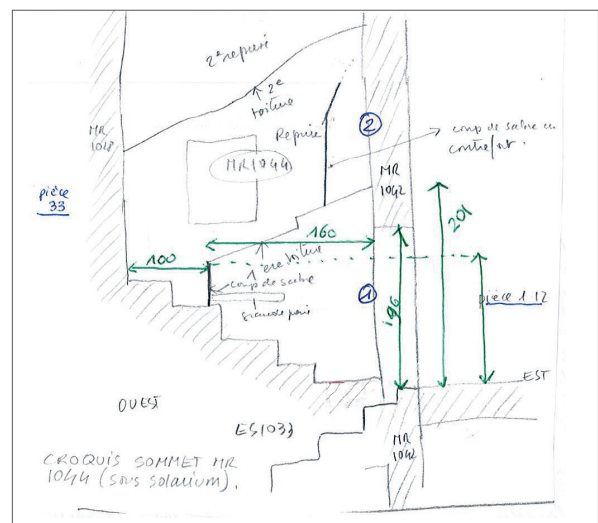 2e reprise
2e
toiture
MR
1018
Reprise
②
coup de sabre en
contrefort.
MR1044
MR
1042
pièce
33
201
160
100
1ère toiture
coup de sabre
①
196
pièce 112
grande pierre
EST
OUEST
ES1033
MR
1042
CROQUIS SOMMET MR
1044 (sous solarium).